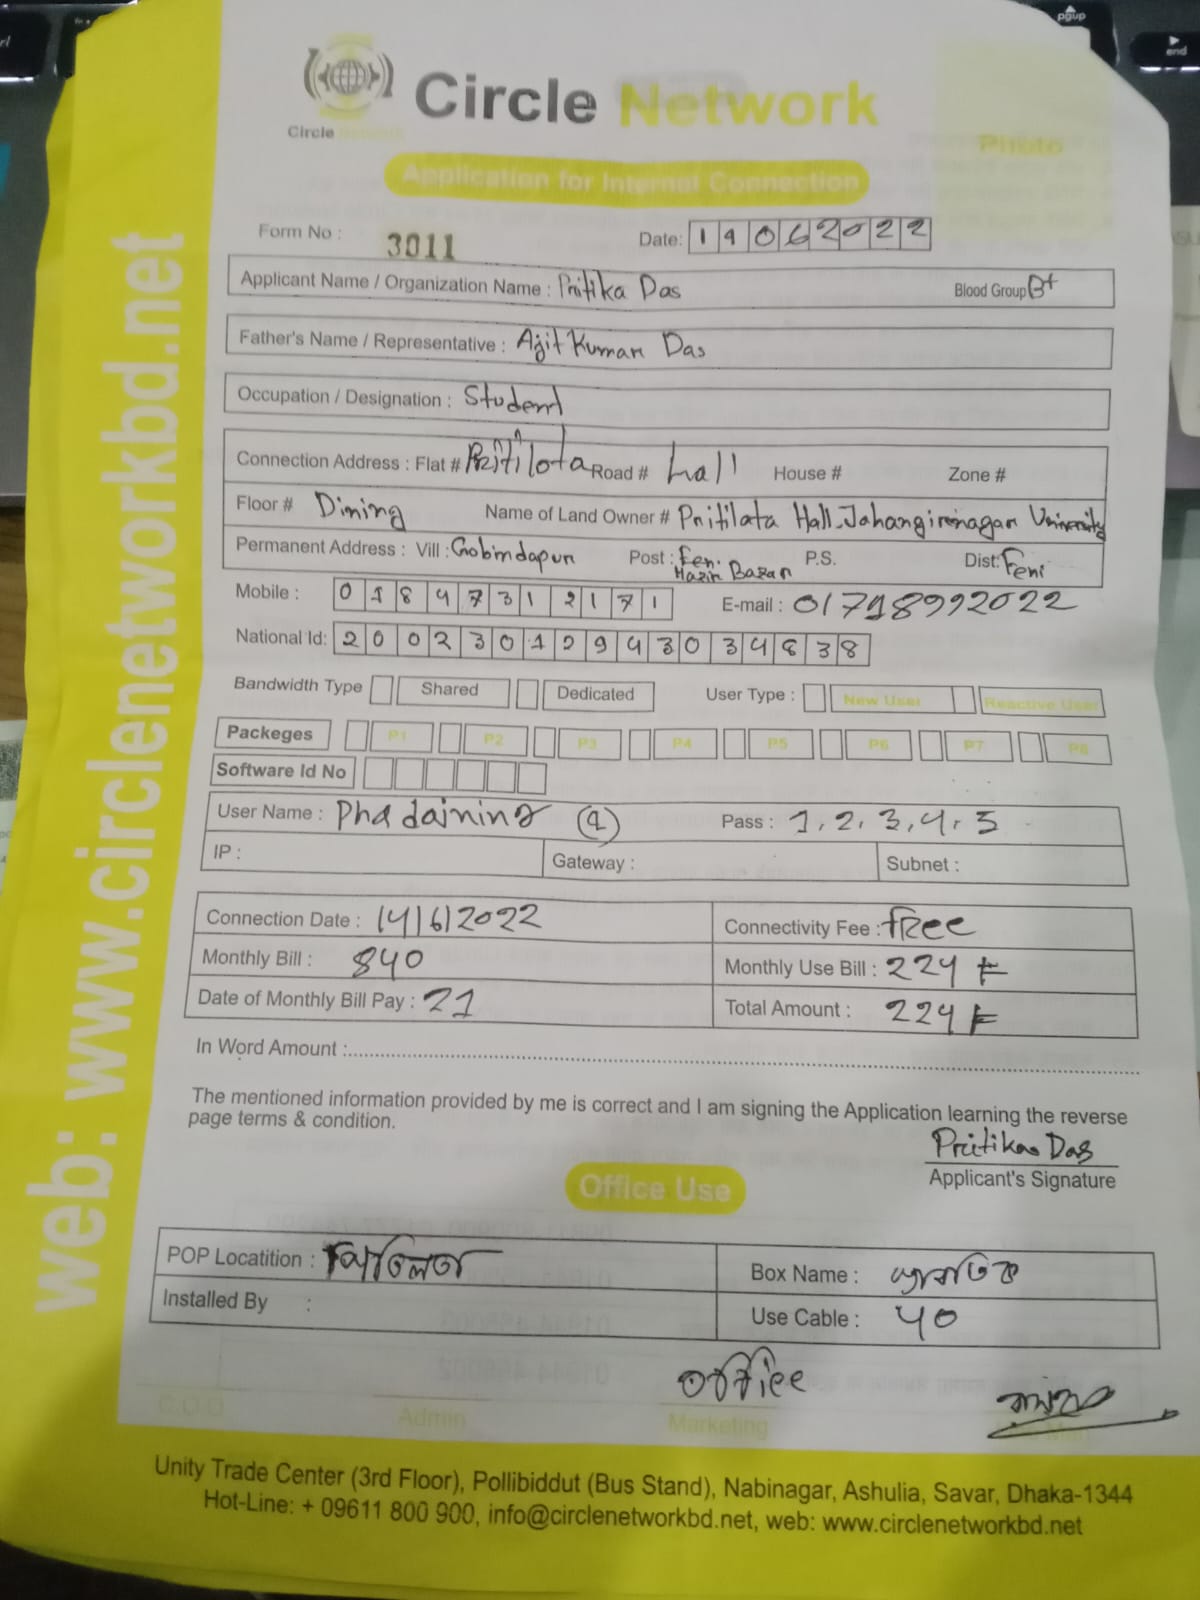 Circle Network
Circle Network
Photo
Application for Internet Connection
Form No : 3011 Date: 14062022
Applicant Name / Organization Name : Pritika Das Blood Group B+
Father's Name / Representative : Ajit Kumar Das
Occupation / Designation : Student
Connection Address : Flat # Pritilota Road # hall House # Zone #
Floor # Dining Name of Land Owner # Pritilata Hall, Jahangirnagar University
Permanent Address : Vill : Gobindapur Post : Feni Hazir Bazar P.S. Dist: Feni
Mobile : 01847312171 E-mail : 01718992022
National Id: 20023012943034838
Bandwidth Type Shared Dedicated User Type : New User Reactive User
Packeges P1 P2 P3 P4 P5 P6 P7 P8
Software Id No
User Name : Phadaining Pass : 1,2,3,4,5
IP : Gateway : Subnet :
Connection Date : 14/6/2022 Connectivity Fee : free
Monthly Bill : 840 Monthly Use Bill : 224
Date of Monthly Bill Pay : 21 Total Amount : 224
In Word Amount :
The mentioned information provided by me is correct and I am signing the Application learning the reverse
page terms & condition.
Pritika Das
Applicant's Signature
Office Use
POP Locatition : Box Name :
Installed By : Use Cable : 40
Office
C.O.O Admin Marketing
Unity Trade Center (3rd Floor), Pollibiddut (Bus Stand), Nabinagar, Ashulia, Savar, Dhaka-1344
Hot-Line: + 09611 800 900, info@circlenetworkbd.net, web: www.circlenetworkbd.net
web: www.circlenetworkbd.net